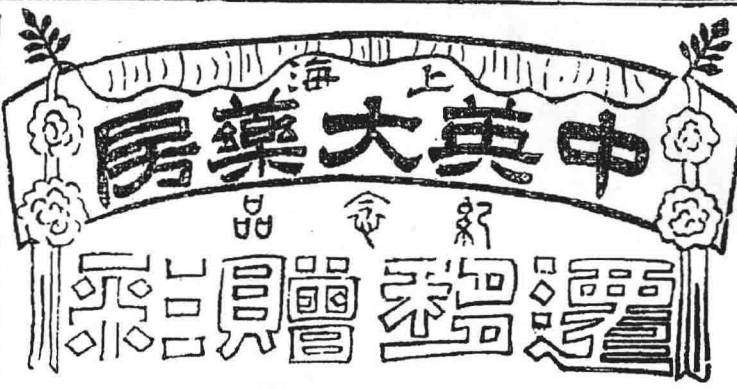 上海
中英大藥房
紀念品
遷移贈彩